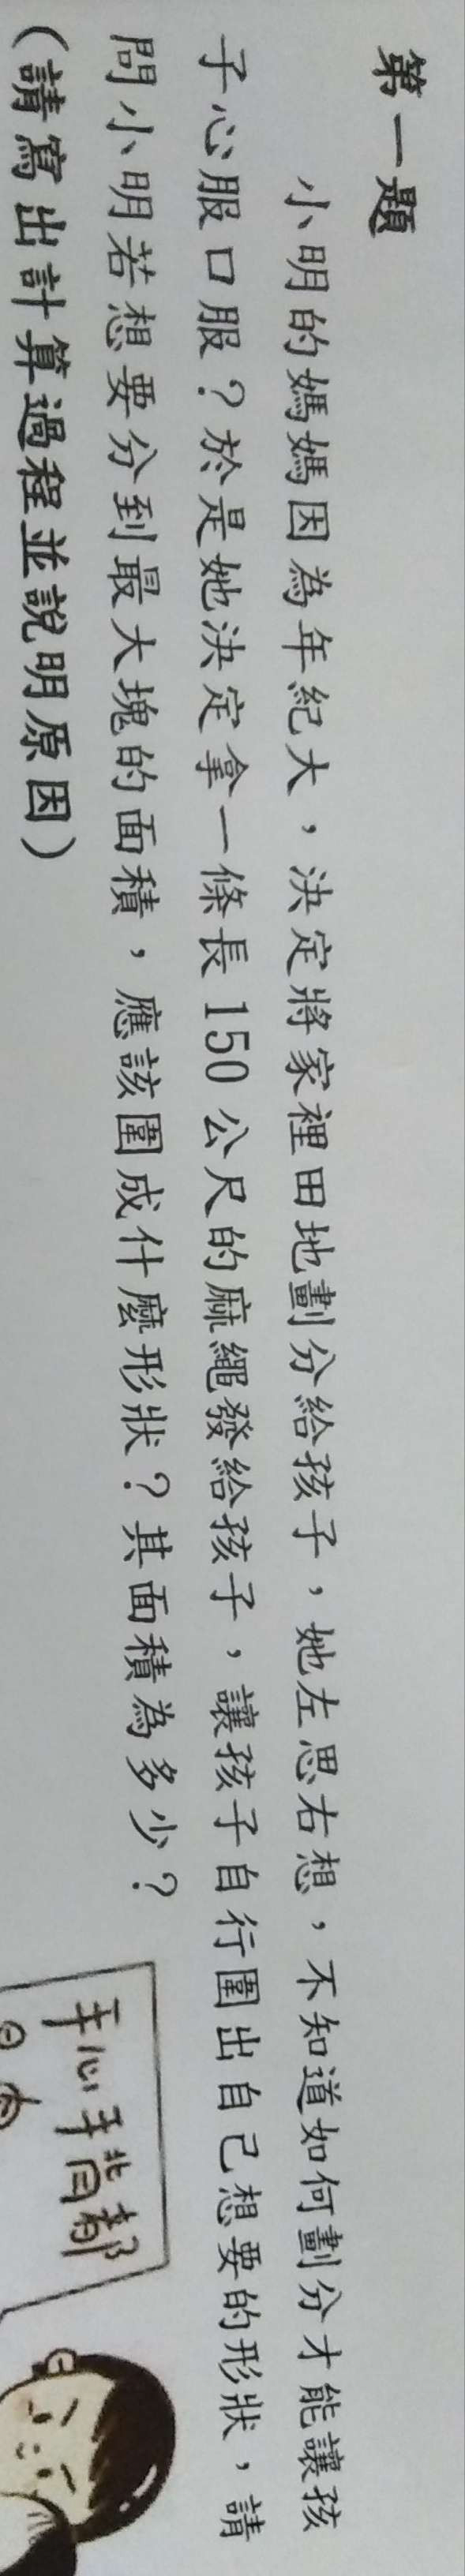 第一題
小明的媽媽因為年紀大，決定將家裡田地劃分給孩子，她左思右想，不知道如何劃分才能讓孩
子心服口服？於是她決定拿一條長150公尺的麻繩發給孩子，讓孩子自行圍出自己想要的形狀，請
問小明若想要分到最大塊的面積，應該圍成什麼形狀？其面積為多少？
（請寫出計算過程並說明原因）
手心手背都